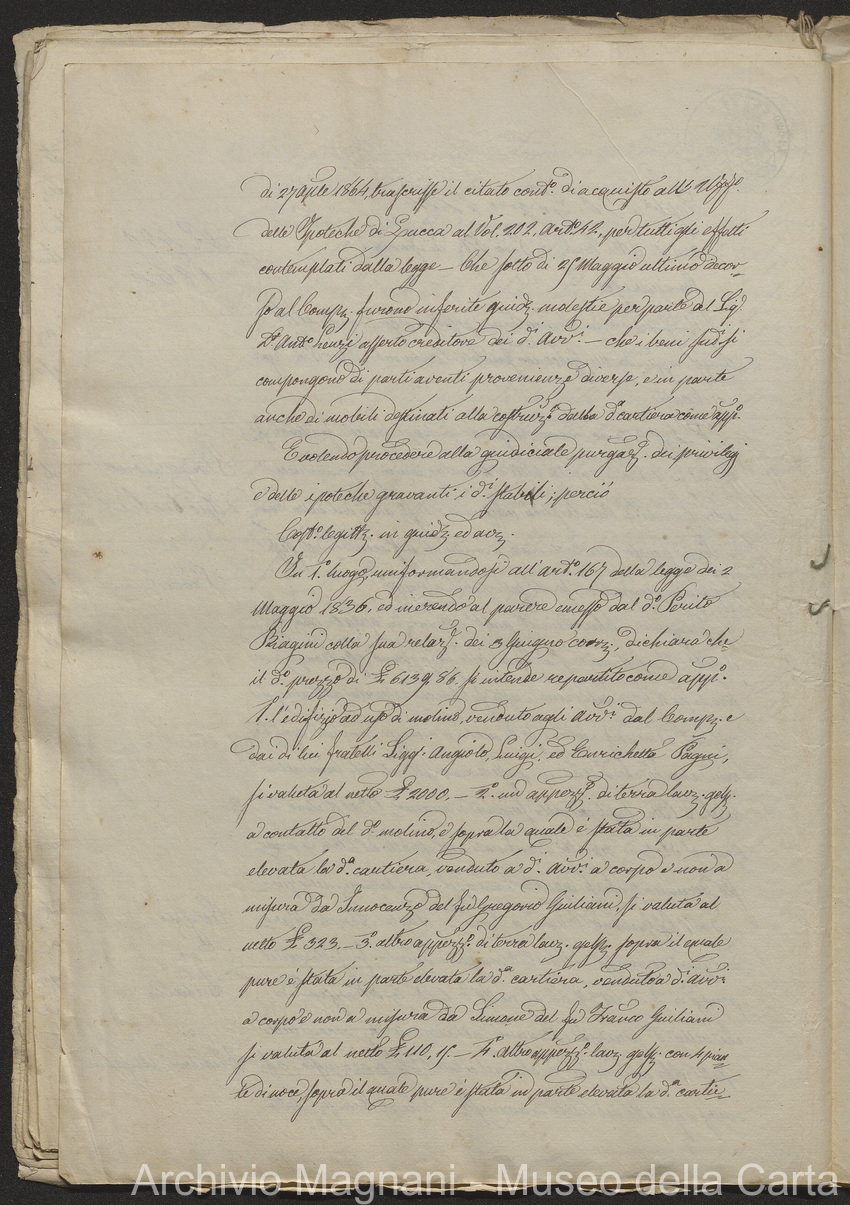 di 27 Aple 1864, trascrisse il citato contto. di acquisto all' Uffizo.
delle Ipoteche di Lucca al Vol. 202, Arto. 42, per tutti gli effetti
contemplati dalla legge – Che sotto di 25 Maggio ultimo decor-
so al Comp. furono inferite giudz. molestie per parte del Sig.
Dr. Anto. asserto creditore dei di. Avvi. – che i beni sudi. si
compongono di parti aventi provenienze diverse, e in parte
anche di mobili destinati alla costruze. della da. cartiera come appo.
E volendo procedere alla giudiciale purgaze. dei privilegj
e delle ipoteche gravanti i di. stabili; perciò
Costo. legittz. in giudz ed avz.
In 1o. luogo, uniformandosi all' arto. 167 della legge dei 2
Maggio 1836, ed inerendo al parere emesso dal do. Perito
Biagini colla sua relaze. dei 3 Giugno corrz., dichiara che
il do. prezzo di £ 6139. 86. si intende repartito come appo.
1o. l'edifizio ad uso di molino, venduto agli Avvi. dal Comp. e
dai di lui fratelli Sigg.i Angiolo, Luigi, ed Enrichetta Pagni,
si valuta al netto £ 2000. – 2o. un appezzo. di terra lavz. gelsz.
a contatto del do. molino, e sopra la quale è stata in parte
elevata la da. cartiera, venduto a di. Avvi. a corpo e non a
misura da Innocenzo del fu Gregorio Giuliani, si valuta al
netto £ 323. – 3o. altro appezzo. di terra lavz. gelsz. sopra il quale
pure è stata in parte elevata la da. cartiera, venduto a di. Avvi.
a corpo e non a misura da Simone del fu Franco Giuliani
si valuta al netto £ 110. 15. – 4o. altro appezzo. lavz. gelsz. con 4 pian-
te di noce, sopra il quale pure è stata in parte elevata la da. cartie-
Archivio Magnani - Museo della Carta